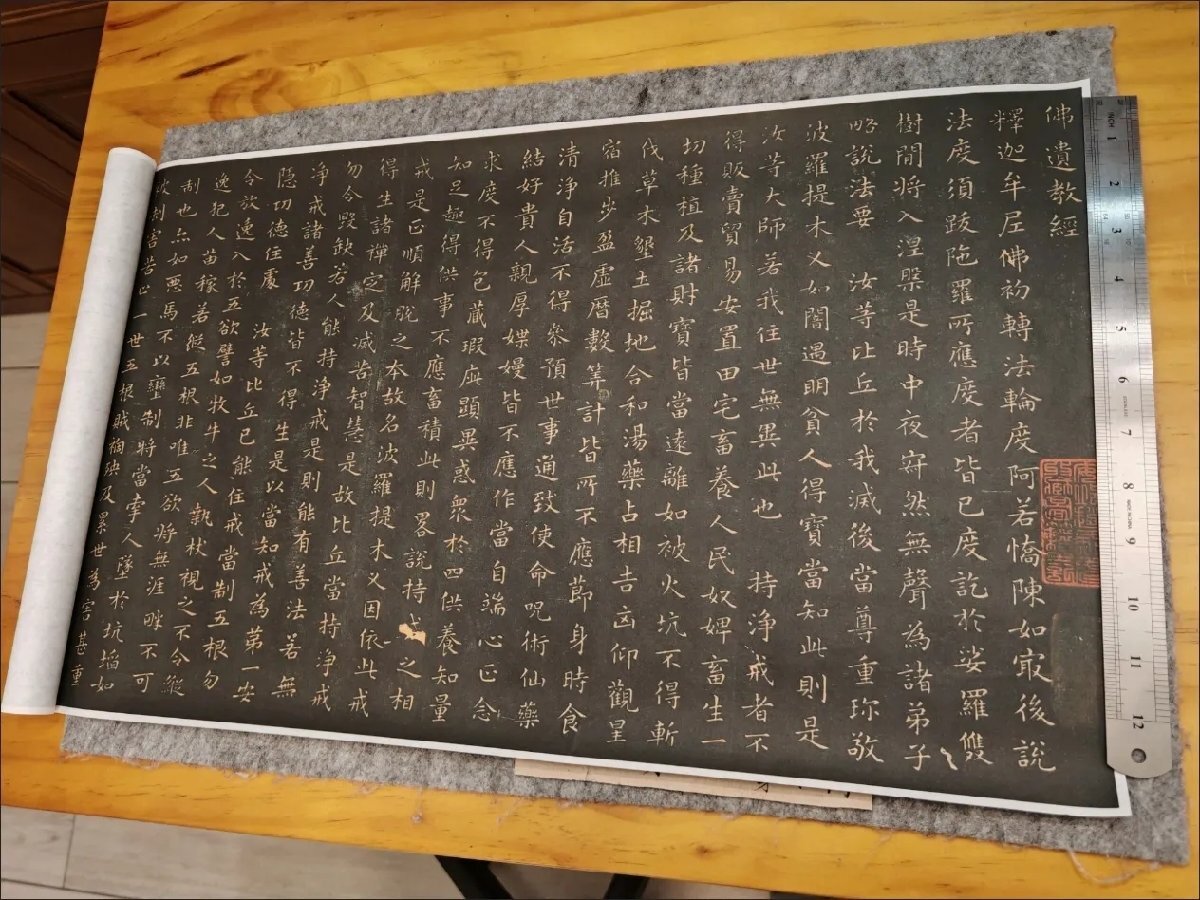 佛遺教經
釋迦牟尼佛初轉法輪度阿若憍陳如冣後說
法度須跋陁羅所應度者皆已度訖於娑羅雙
樹間將入涅槃是時中夜寂然無聲為諸弟子
略說法要 汝等比丘於我滅後當尊重珎敬
波羅提木叉如闇遇明貧人得寶當知此則是
汝等大師若我住世無異此也 持淨戒者不
得販賣貿易安置田宅畜養人民奴婢畜生一
切種植及諸財寶皆當遠離如避火坑不得斬
伐草木墾土掘地合和湯藥占相吉凶仰觀星
宿推步盈虛曆數筭計皆所不應節身時食
清淨自活不得參預世事通致使命呪術仙藥
結好貴人親厚媟嫚皆不應作當自端心正念
求度不得包藏瑕疵顯異惑眾於四供養知量
知足趣得供事不應畜積此則略說持戒之相
戒是正順解脫之本故名波羅提木叉因依此戒
得生諸禪定及滅苦智慧是故比丘當持淨戒
勿令毀缺若人能持淨戒是則能有善法若無
淨戒諸善功德皆不得生是以當知戒為第一安
隱功德住處 汝等比丘已能住戒當制五根勿
令放逸入於五欲譬如牧牛之人執杖視之不令縱
逸犯人苗稼若縱五根非唯五欲將無涯畔不可
制也亦如惡馬不以轡制將當牽人墜於坑埳如
被劫害苦止一世五根賊禍殃及累世為害甚重
INCH 1 2 3 4 5 6 7 8 9 10 11 12